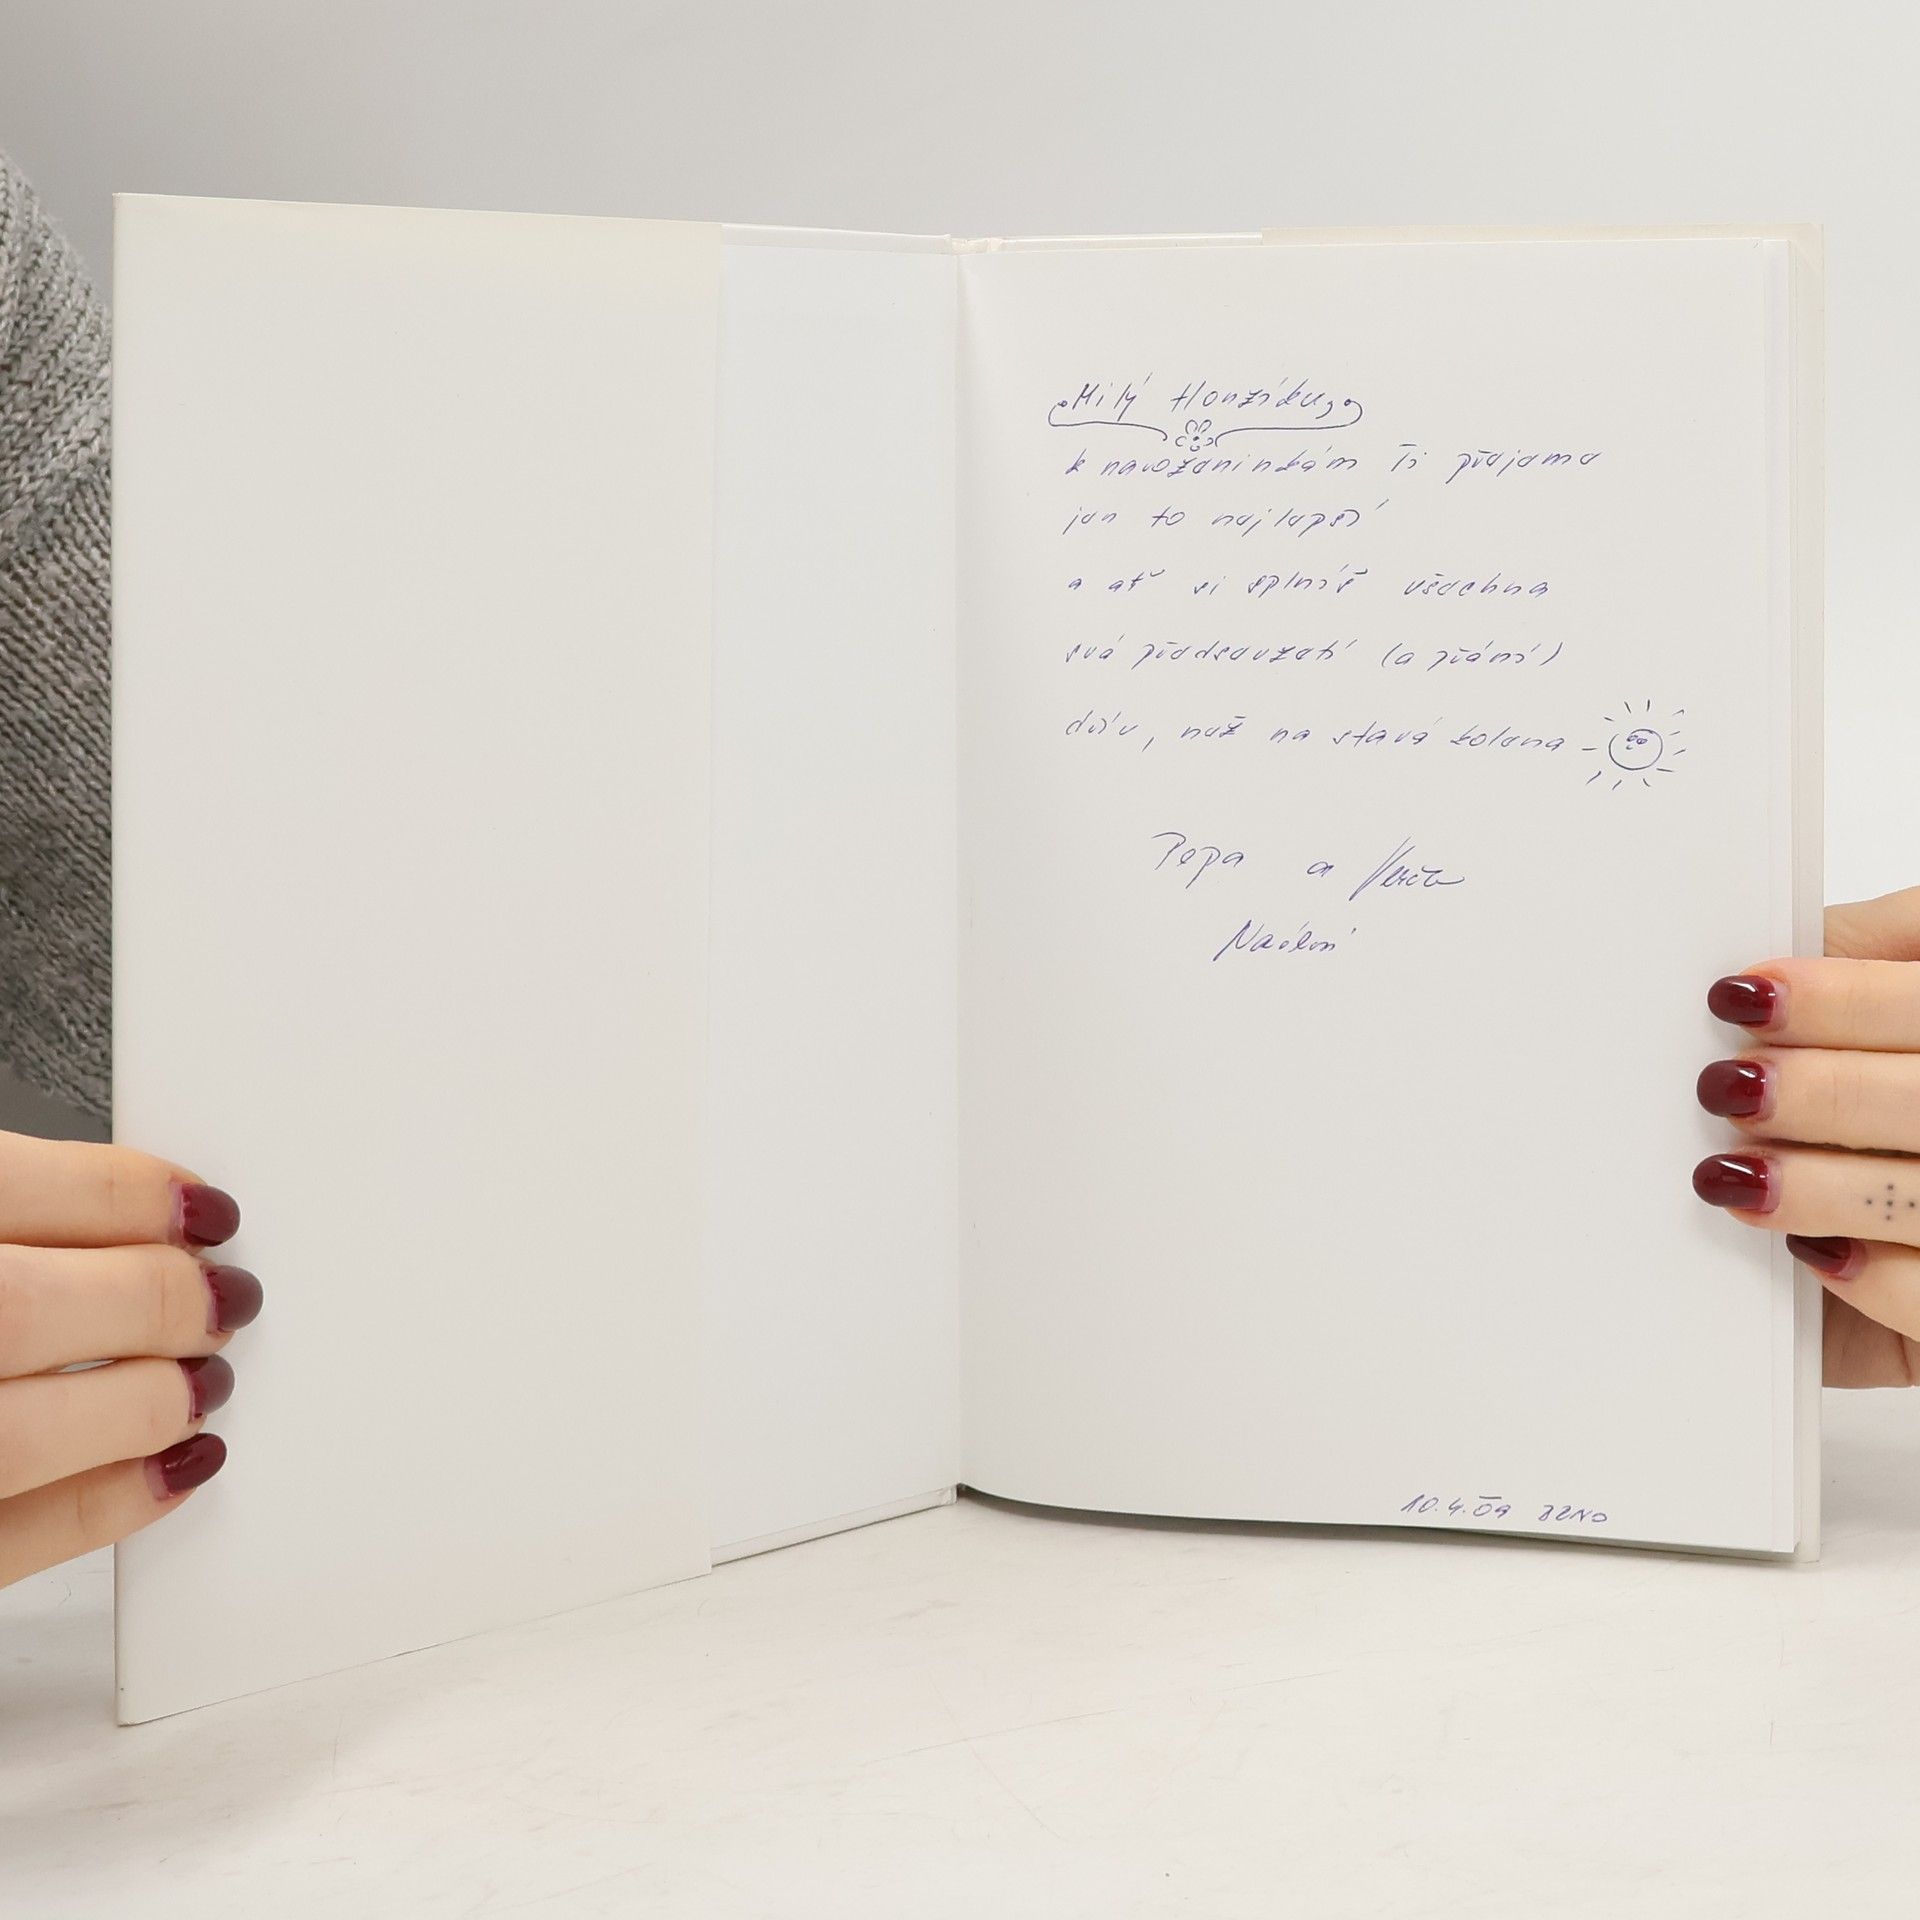 Milý Honzíku,
k narozeninkám Ti přejeme
jen to nejlepší
a ať si splníš všechna
svá předsevzetí (a přání)
dřív, než na stará kolena
Pepa a Verča
10.4.09 BRNO